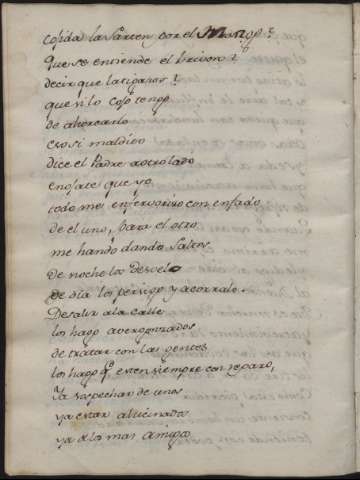 cojida la Sarten por el Mango?
que se entiende el brivon?
decir que latigazos?
que si lo cojo tengo
de ahorcarlo
eso si maldito
dice el Padre aotro lado
enojate que yo
todo me enfervorizo con enfado
de el uno, para el otro
me hando dando Saltos
de noche los desvelo
de dia los persigo y acorralo
Desalir ala calle
los hago avergonzados
de tratar con las gentes
los hago qe esten siempre con reparo,
Ya sospechar de unos
ya estar alucinados
ya a los mas amigos